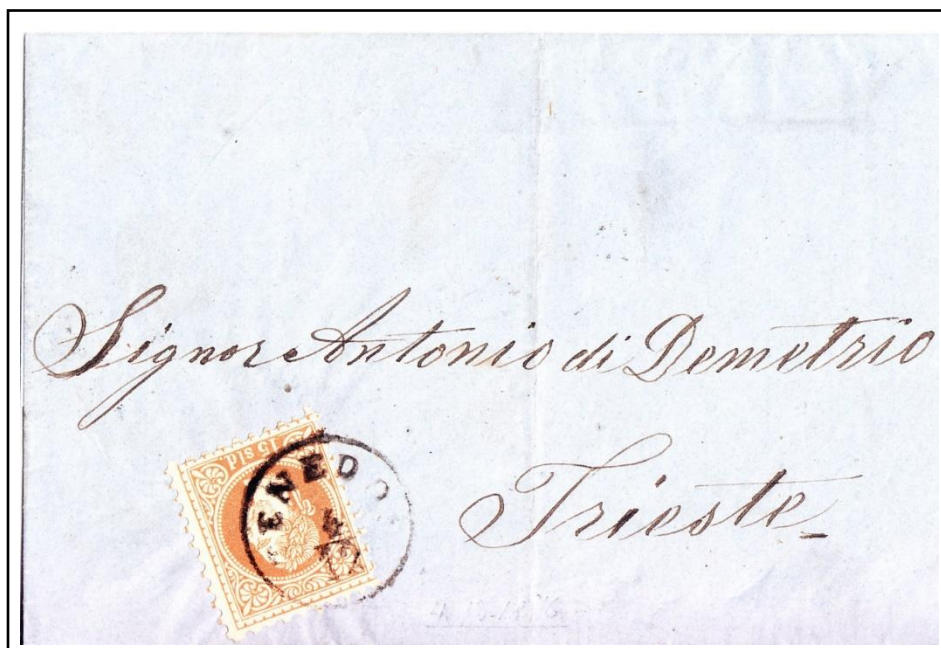 Signor Antonio di Demetrio
Trieste_
15 sld
ENEDO